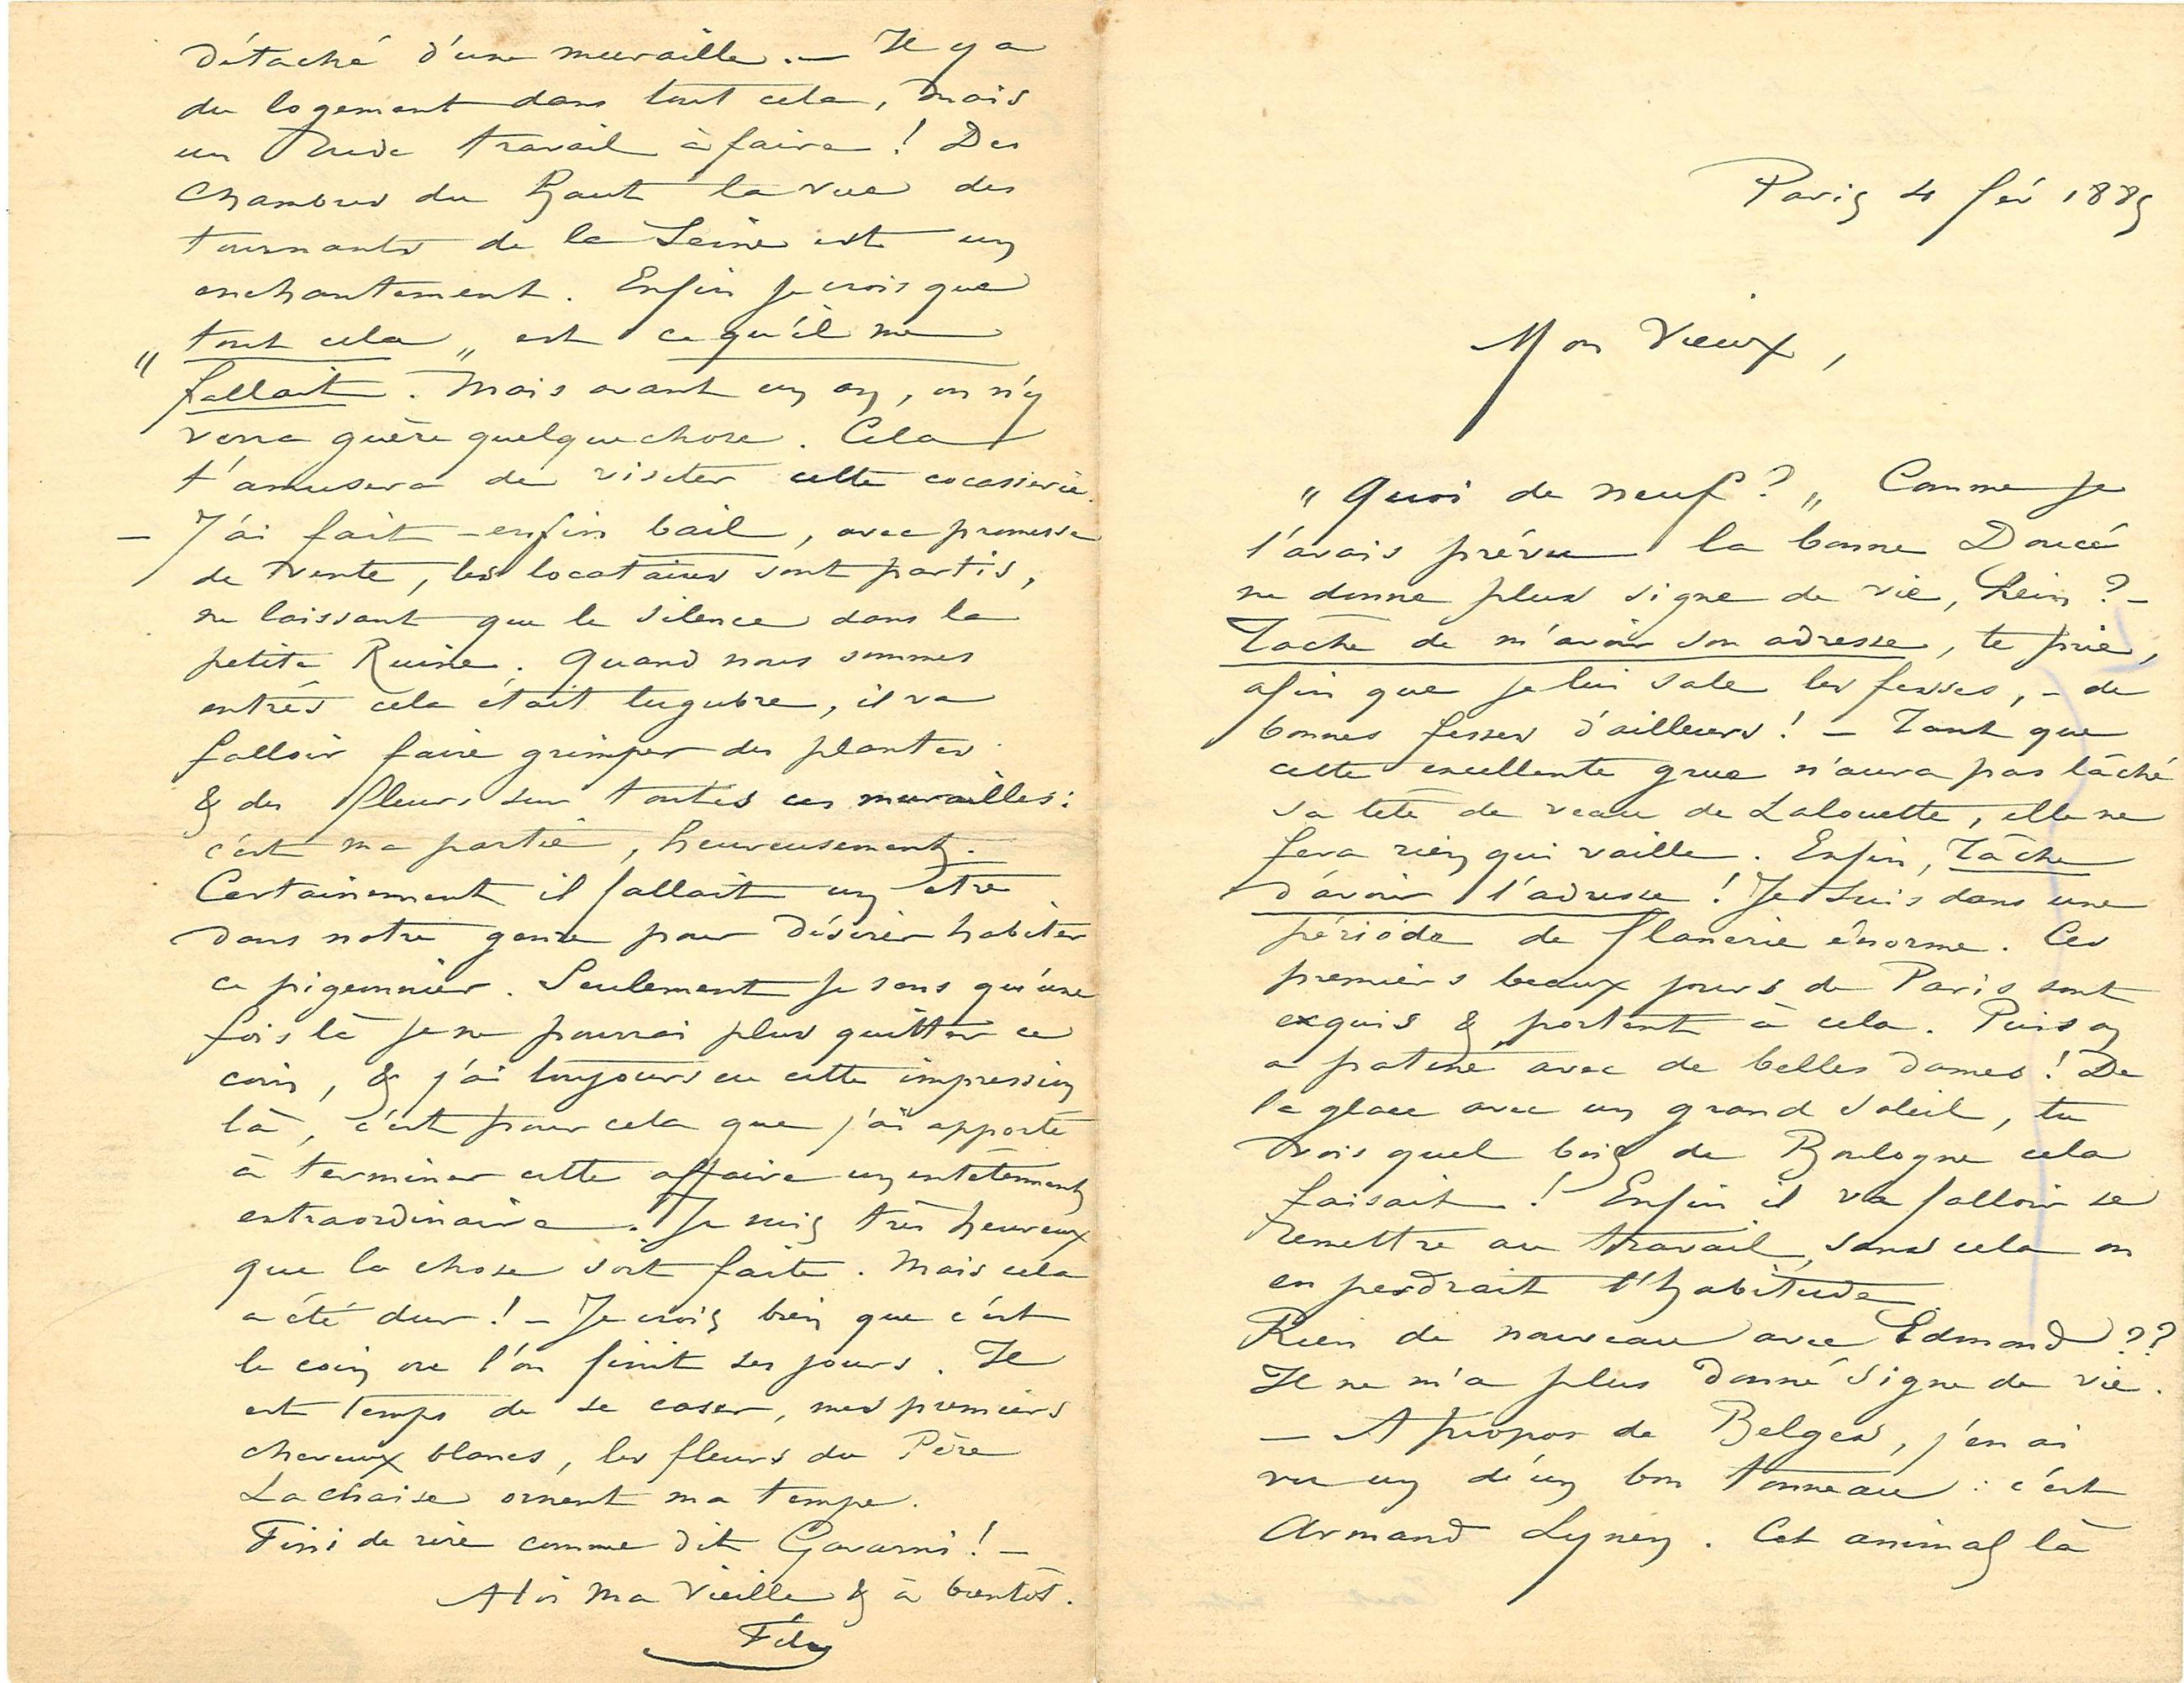 Paris 4 fév 1885
Mon Vieux,
" Quoi de neuf ? „ Comme je
l'avais prévu la bonne Doucé
ne donne plus signe de vie, hein ? –
Tâche de m'avoir son adresse, te prie,
afin que je lui sale les fesses, – de
bonnes fesses d'ailleurs ! – Tant que
cette excellente grue n'aura pas lâché
sa tête de veau de Lalouette, elle ne
fera rien qui vaille. Enfin, Tâche
d'avoir l'adresse ! Je suis dans une
période de flanerie énorme. Ces
premiers beaux jours de Paris sont
exquis & portent à cela. Puis on
a patiné avec de belles dames ! De
la glace avec un grand soleil, tu
vois quel bois de Boulogne cela
faisait ! Enfin il va falloir se
remettre au travail, sans cela on
en perdrait l'habitude.
Rien de nouveau avec Edmond ??
Il ne m'a plus donné signe de vie.
– A propos de Belges, j'en ai
vu un d'un bon tonneau : c'est
Armand Lynen. Cet animal là
détaché d'une muraille. – Il y a
du logement dans tout cela, mais
un rude travail à faire ! Des
chambres du haut la vue des
tournants de la Seine est un
enchantement. Enfin je crois que
" tout cela „ est ce qu'il me
fallait. Mais avant un an, on n'y
verra guère quelque chose. Cela
t'amusera de visiter cette cocasserie.
– J'ai fait – enfin bail, avec promesse
de vente, les locataires sont partis,
ne laissant que le silence dans la
petite Ruine. Quand nous sommes
entrés cela était lugubre, il va
falloir faire grimper des plantes
& des fleurs sur toutes ces murailles :
c'est ma partie, heureusement.
Certainement il fallait un être
dans notre genre pour désirer habiter
ce pigeonnier. Seulement je sens qu'une
fois là je ne pourrai plus quitter ce
coin, & j'ai toujours eu cette impression
là, c'est pour cela que j'ai apporté
à terminer cette affaire un entêtement
extraordinaire. Je suis très heureux
que la chose soit faite. Mais cela
a été dur ! – Je crois bien que c'est
le coin où l'on finit ses jours. Il
est temps de se caser, mes premiers
cheveux blancs, les fleurs du Père
Lachaise ornent ma tempe.
Fini de rire comme dit Gavarni ! –
A toi ma vieille & à bientôt.
Fély